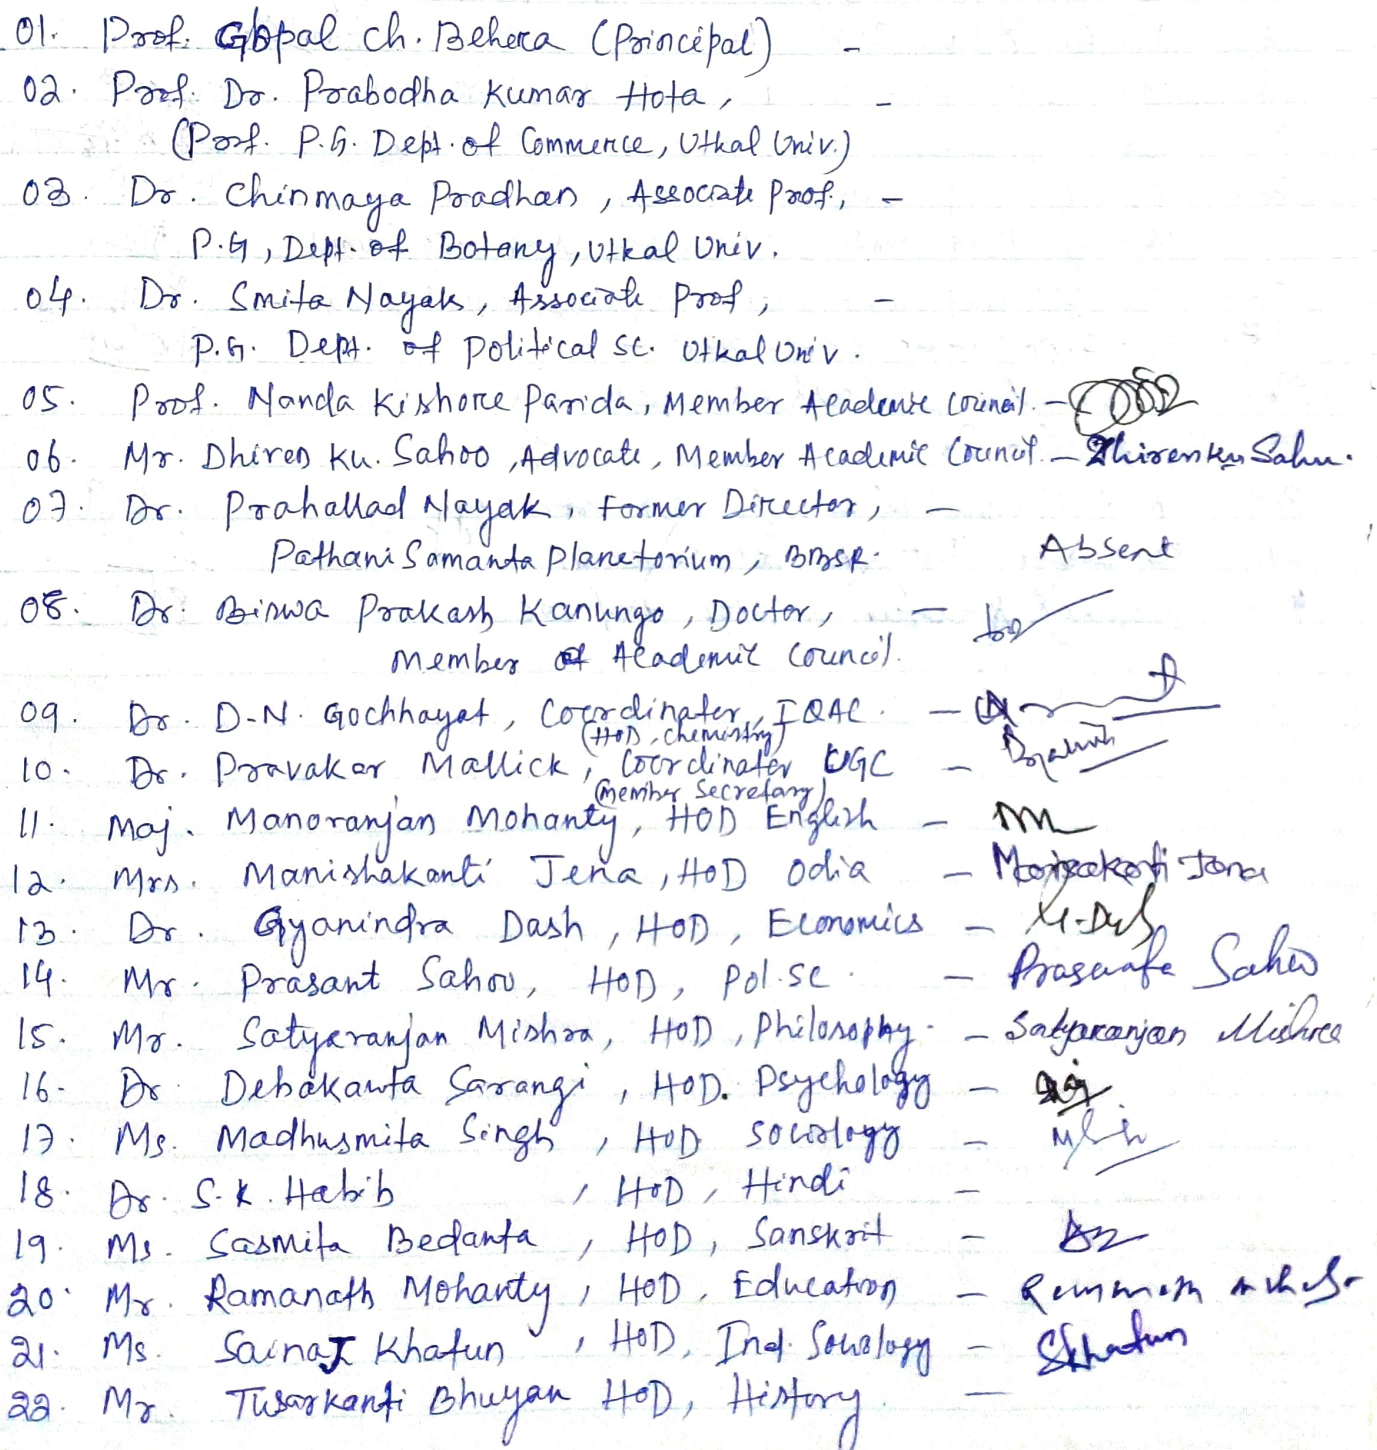 01. Prof. Gopal Ch. Behera (Principal) -
02. Prof. Dr. Prabodha Kumar Hota, -
(Prof. P.G. Dept. of Commerce, Utkal Univ.)
03. Dr. Chinmaya Pradhan, Associate Prof., -
P.G, Dept. of Botany, Utkal Univ.
04. Dr. Smita Nayak, Associate Prof, -
P.G. Dept. of Political Sc. Utkal Univ.
05. Prof. Nanda Kishore Parida, Member Academic Council. -
06. Mr. Dhiren Ku. Sahoo, Advocate, Member Academic Council. - Dhiren Ku Sahu.
07. Dr. Prahallad Nayak, Former Director, -
Pathani Samanta Planetorium, BBSR. Absent
08. Dr. Biswa Prakash Kanungo, Doctor, -
Member of Academic Council.
09. Dr. D.N. Gochhayat, Coordinator, IQAC. -
(HOD, Chemistry)
10. Dr. Pravakar Mallick, Coordinator UGC -
(Member Secretary)
11. Maj. Manoranjan Mohanty, HOD English -
12. Mrs. Manishakanti Jena, HOD Odia - Manisakanti Jena
13. Dr. Gyanindra Dash, HOD, Economics -
14. Mr. Prasant Sahoo, HOD, Pol.Sc. - Prasanta Sahoo
15. Mr. Satyaranjan Mishra, HOD, Philosophy. - Satyaranjan Mishra
16- Dr. Debakanta Sarangi, HOD. Psychology -
17. Ms. Madhusmita Singh, HOD Sociology -
18. Dr. S.K. Habib, HOD, Hindi -
19. Ms. Sasmita Bedanta, HOD, Sanskrit -
20. Mr. Ramanath Mohanty, HOD, Education -
21. Ms. Sainaj Khatun, HOD, Ind. Sociology - Skhatun
22. Mr. Tusarkanti Bhuyan HOD, History. -